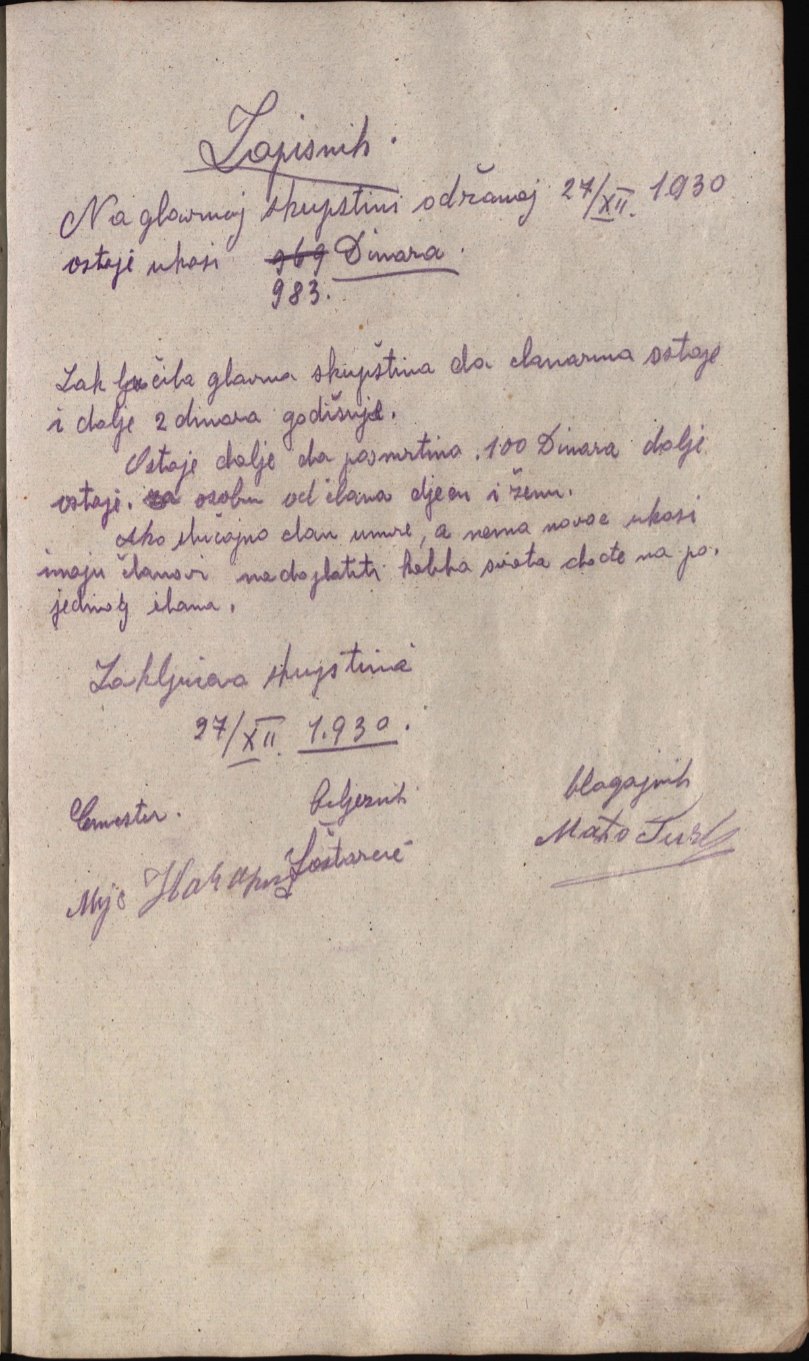 Zapisnik.
Na glavnoj skupštini održanoj 27/XII. 1930
ostaje ukasi 969 Dinara.
983.
Zaključila glavna skupština da clanarina ostaje
i dalje 2 dinara godišnje.
Ostaje dalje da posmrtina. 100 Dinara dalje
ostaje. za osobu od člana djecu i ženu.
Ako slučajno clan umre, a nema novac ukasi
imaju članovi nadoplatiti kolka svota dođe na po.
jedinog člana.
Zakljucava skupstina
27/XII. 1.930.
Beljeznik
blagajnik
Šoštarić
Mato
Mijo